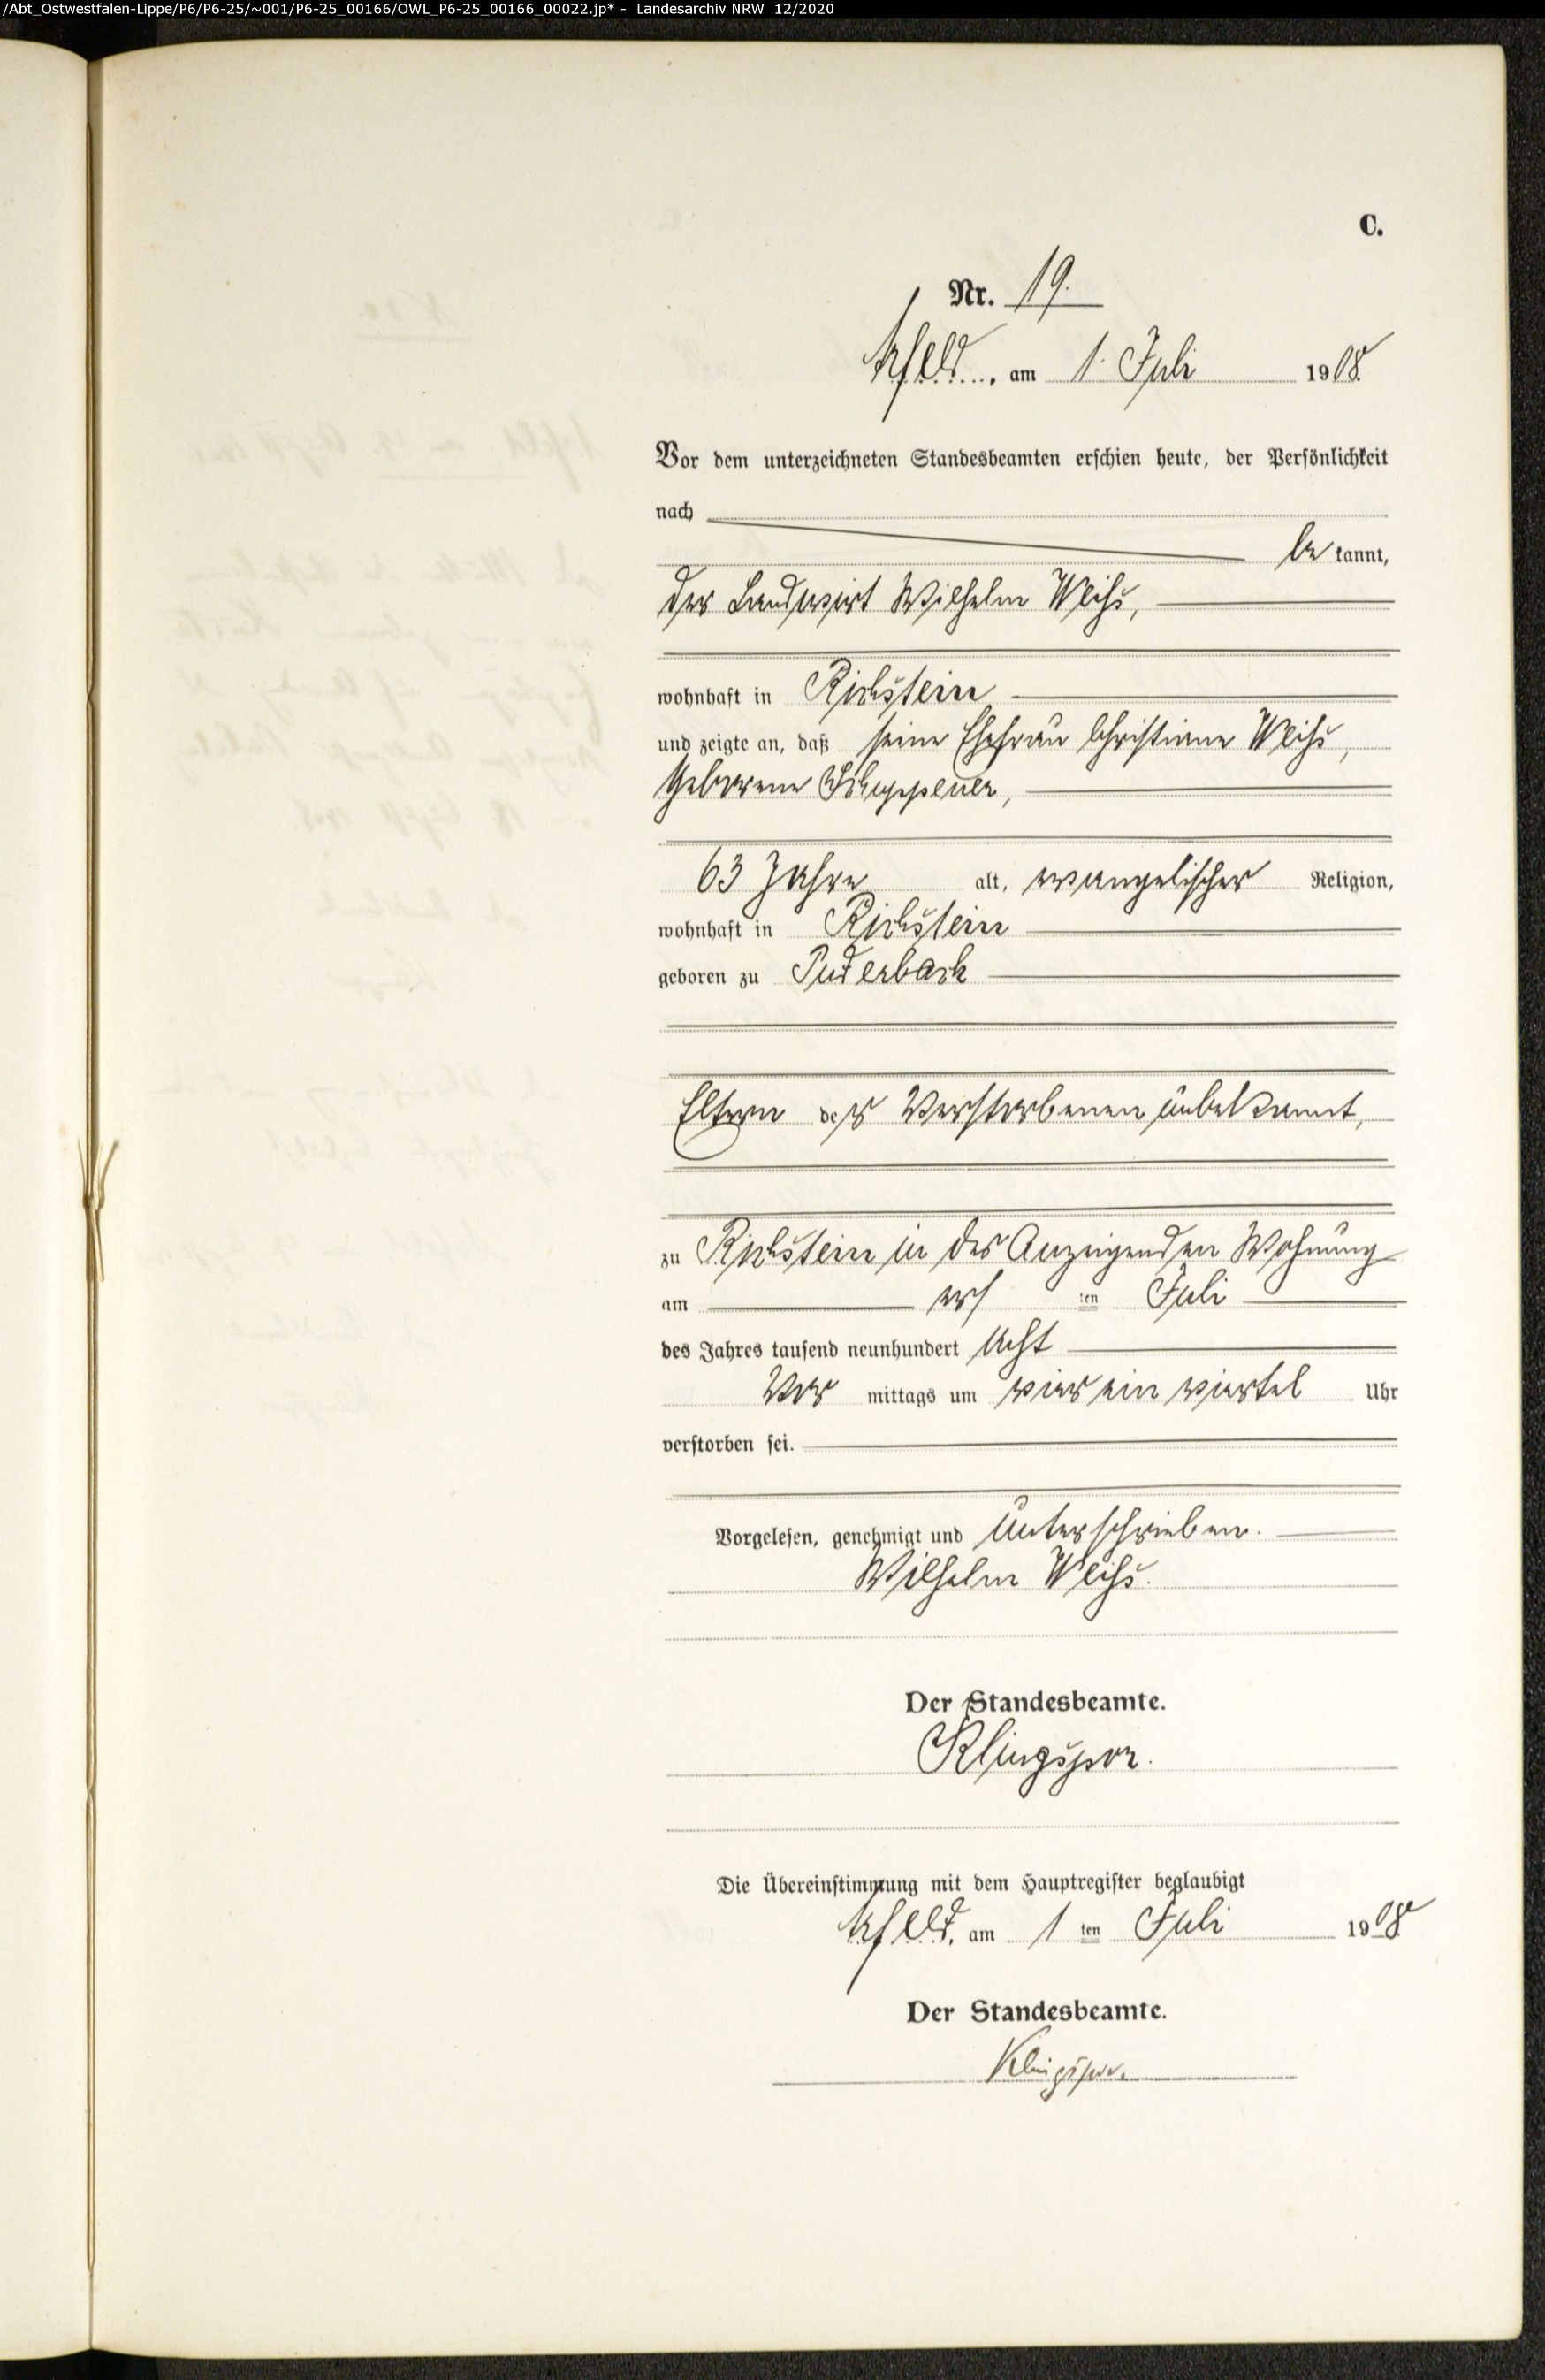 /Abt_Ostwestfalen-Lippe/P6/P6-25/~001/P6-25_00166/OWL_P6-25_00166_00022.jp* - Landesarchiv NRW 12/2020
C.
Nr. 19.
Arfeld, am 1. Juli 1908
Vor dem unterzeichneten Standesbeamten erschien heute, der Persönlichkeit
nach
be kannt,
der Landwirt Wilhelm Weihs,
wohnhaft in Richstein
und zeigte an, daß seine Ehefrau Christiane Weihs,
geborene Schuppener,
63 Jahre alt, evangelischer Religion,
wohnhaft in Richstein
geboren zu Puderbach
Eltern der Verstorbenen unbekannt,
zu Richstein in des Anzeigenden Wohnung
am ersten Juli
des Jahres tausend neunhundert acht
Vor mittags um vier ein viertel Uhr
verstorben sei.
Vorgelesen, genehmigt und unterschrieben.
Wilhelm Weihs.
Der Standesbeamte.
Klingspor.
Die Übereinstimmung mit dem Hauptregister beglaubigt
Arfeld, am 1 ten Juli 1908
Der Standesbeamte.
Klingspor.